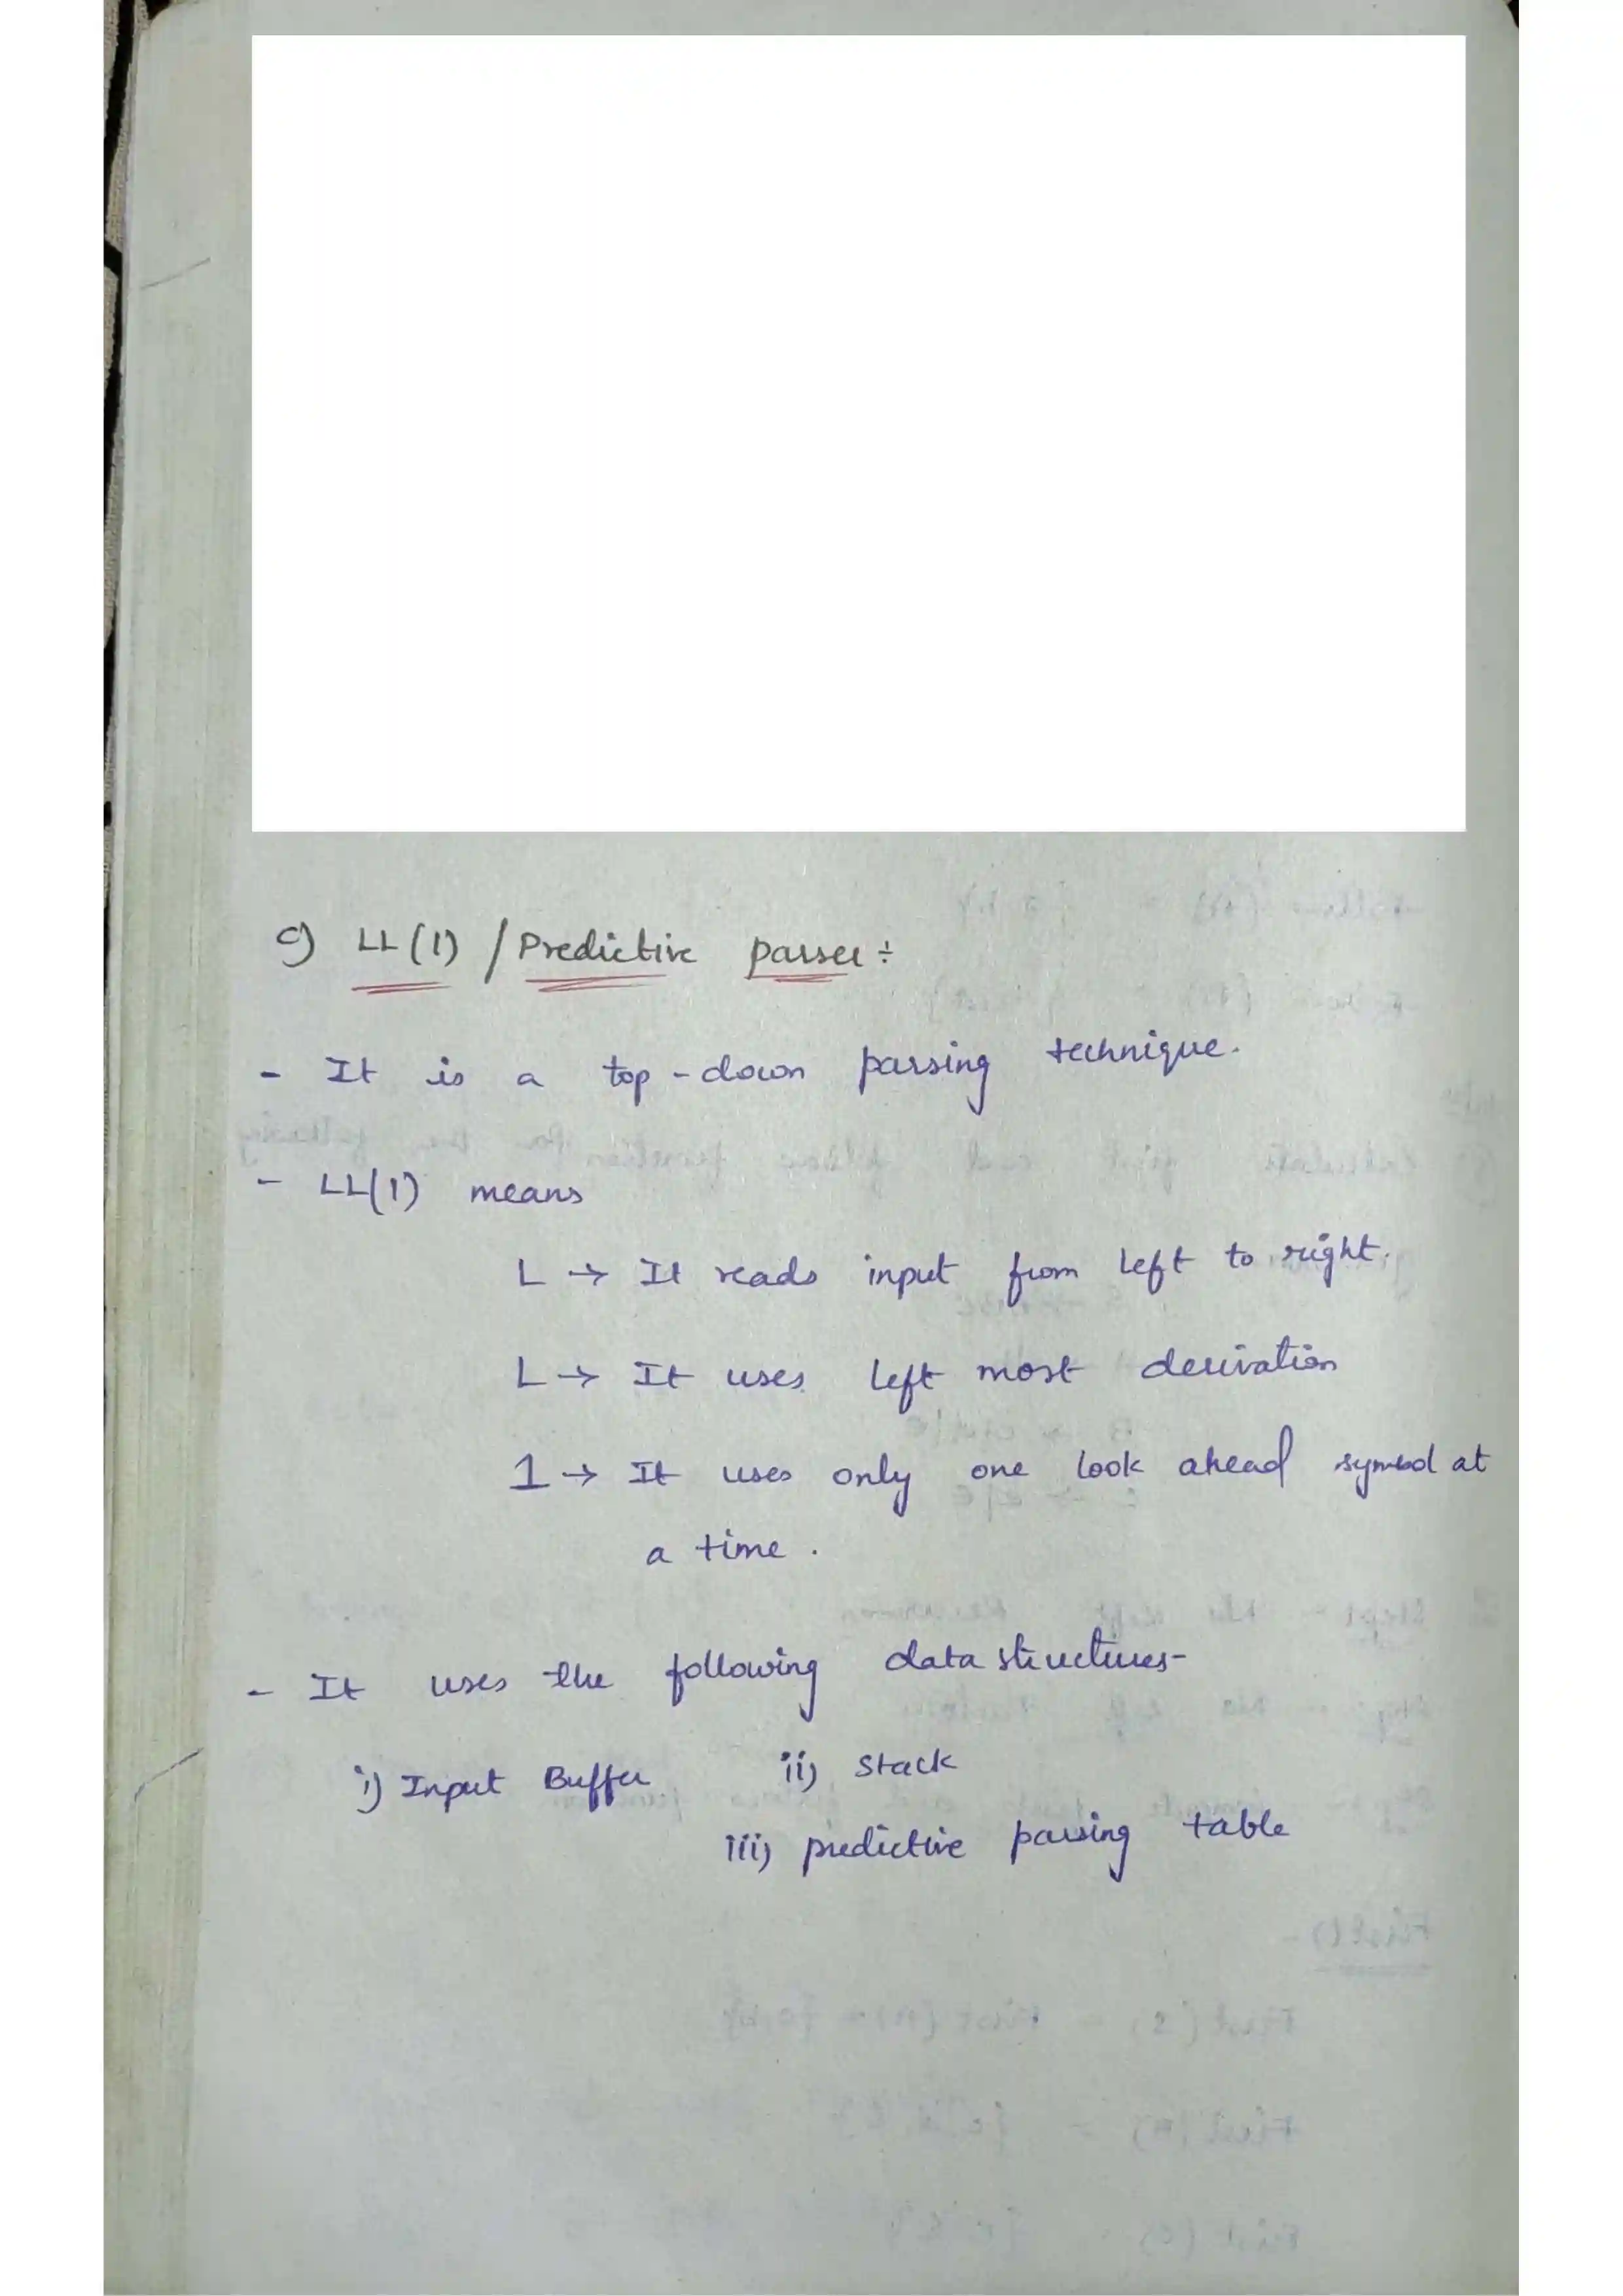 c) LL(1) / Predictive parser ÷
- It is a top-down parsing technique.
- LL(1) means
L → It reads input from left to right.
L → It uses left most derivation
1 → It uses only one look ahead symbol at
a time.
- It uses the following data structures-
i) Input Buffer ii) Stack
iii) predictive parsing table